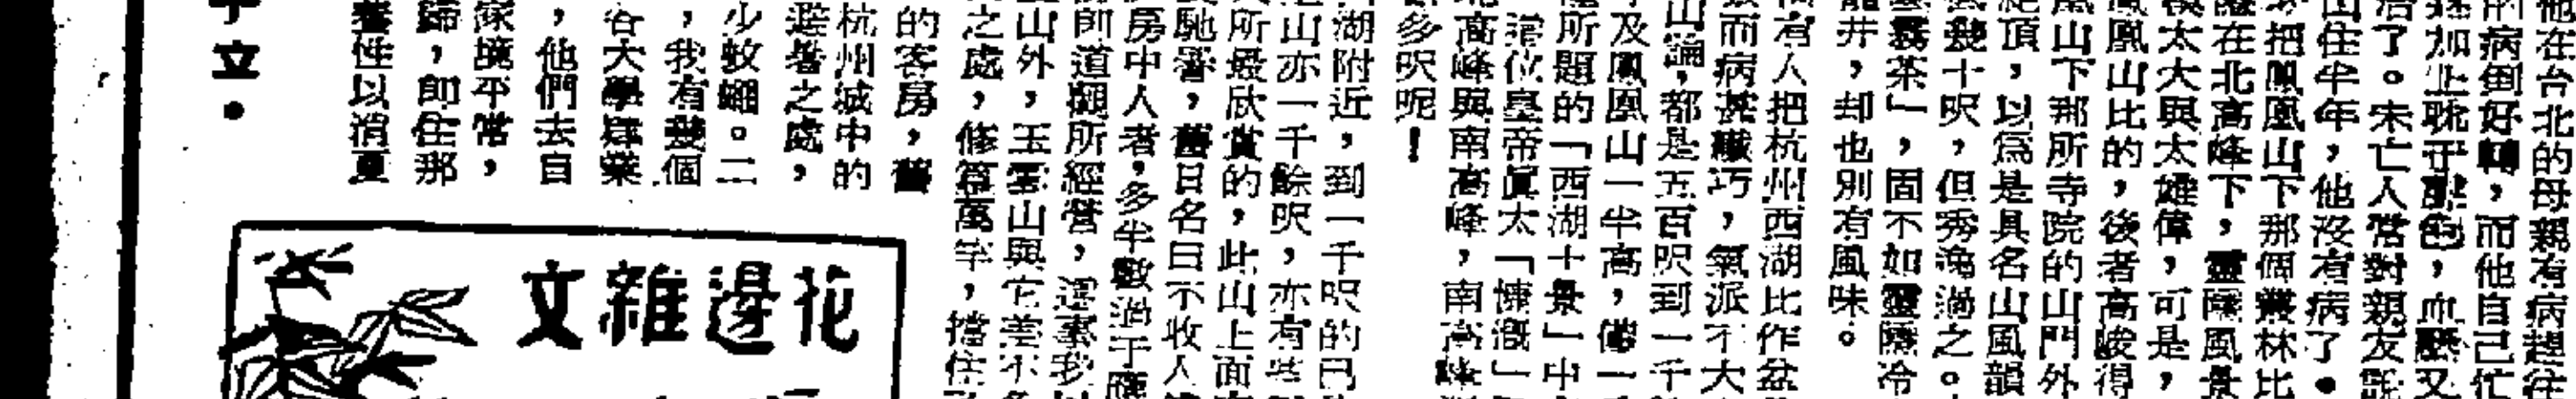 他在台北的母親有病趕往
的病倒好轉，而他自己忙
加上耽于聲色，血壓又
治了。未亡人常對親友說
山住半年，他沒有病了。
把鳳凰山下那個叢林比
在北高峰下，靈隱風景
太大與太雄偉，可是，
鳳凰山比的，後者高峻得
鳳山下那所寺院的山門外
絕頂，以爲是具名山風韻
幾十呎，但秀逸過之。
雲霧茶」，固不如靈隱冷
龍井，却也別有風味。
有人把杭州西湖比作盆
而病甚纖巧，氣派不大
山論，都是五百呎到一千
及鳳凰山一半高，僅一
所題的「西湖十景」中
這位皇帝眞太「慷慨」
北高峰與南高峰，南高峰
多呎呢！
湖附近，到一千呎的已
山亦一千餘呎，亦有
所最欣賞的，此山上面
馳署，舊日名曰不收人
房中人者，多半數過于
前道觀所經營，
山外，玉雲山與它差不多
之處，修篁萬竿，擋住
的客房，舊
杭州城中的
避暑之處，
少蚊蠅。二
，我有幾個
各大學肄業
，他們去自
家境平常，
歸，即住那
養性以消夏
立。
花邊雜文